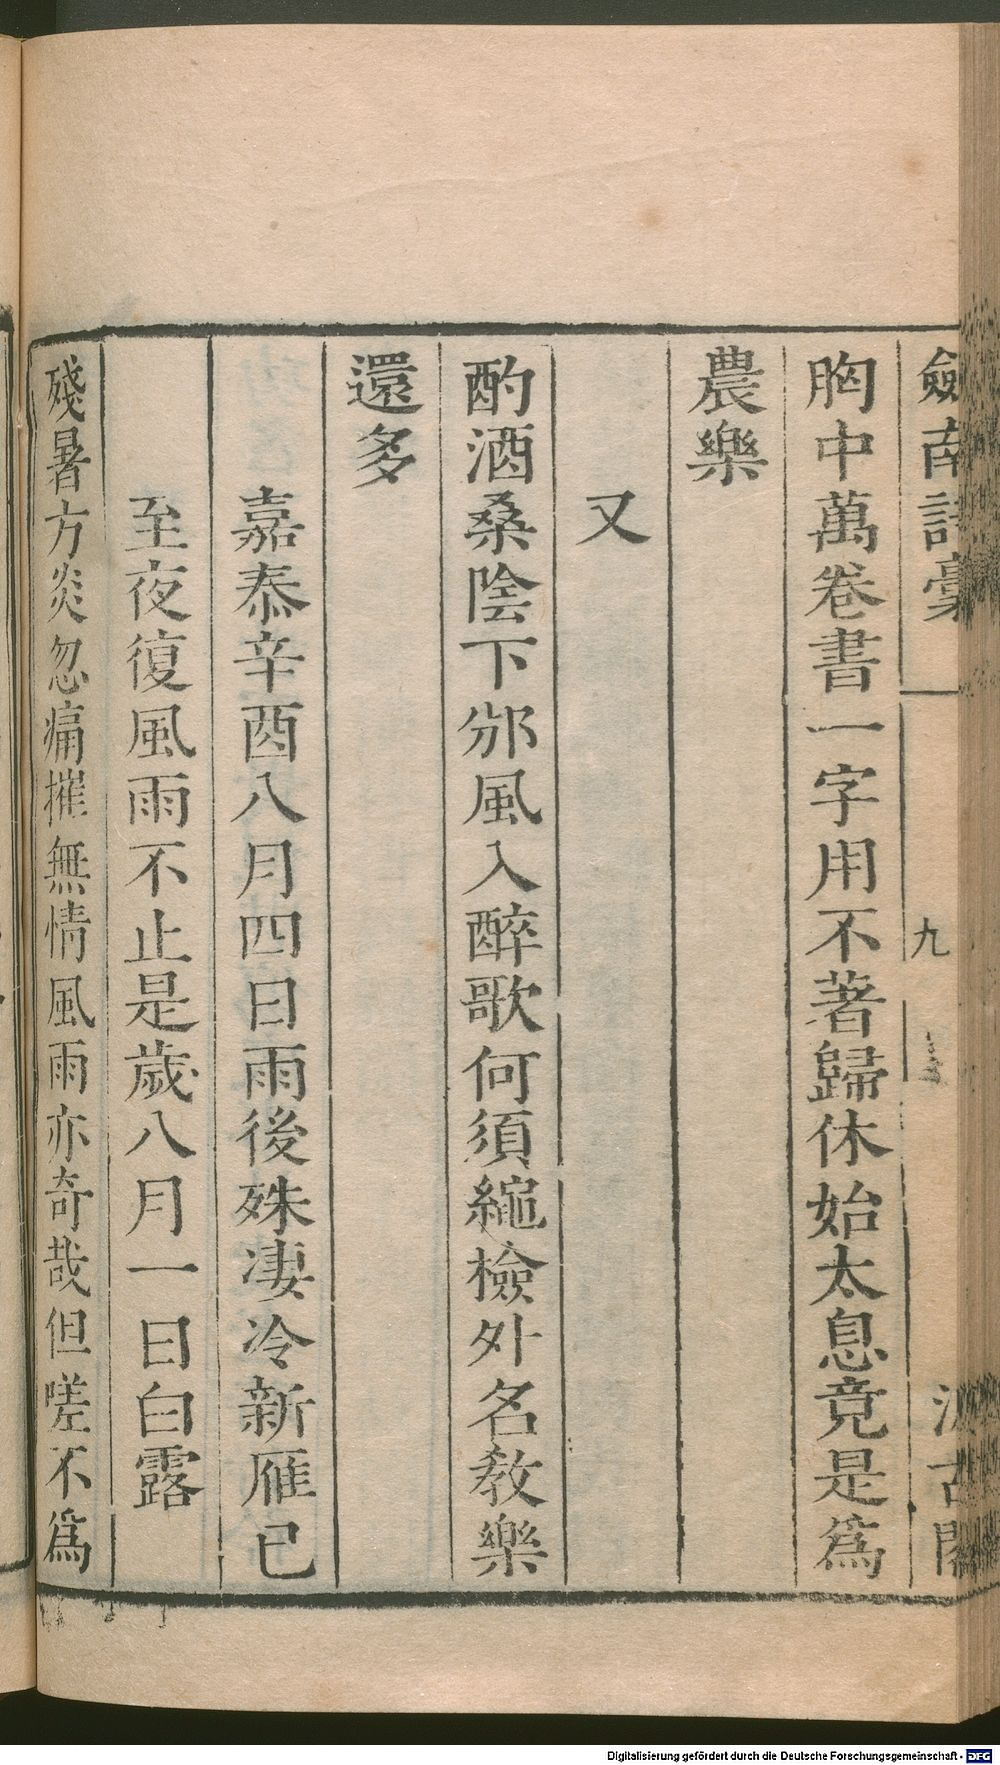 劍南詩稾
九
汲古閣
胸中萬卷書一字用不著歸休始太息竟是爲
農樂
又
酌酒桑陰下邠風入醉歌何須繩檢外名敎樂
還多
嘉泰辛酉八月四日雨後殊凄冷新雁已
至夜復風雨不止是歲八月一日白露
殘暑方炎忽痛摧無情風雨亦奇哉但嗟不爲
Digitalisierung gefördert durch die Deutsche Forschungsgemeinschaft - DFG